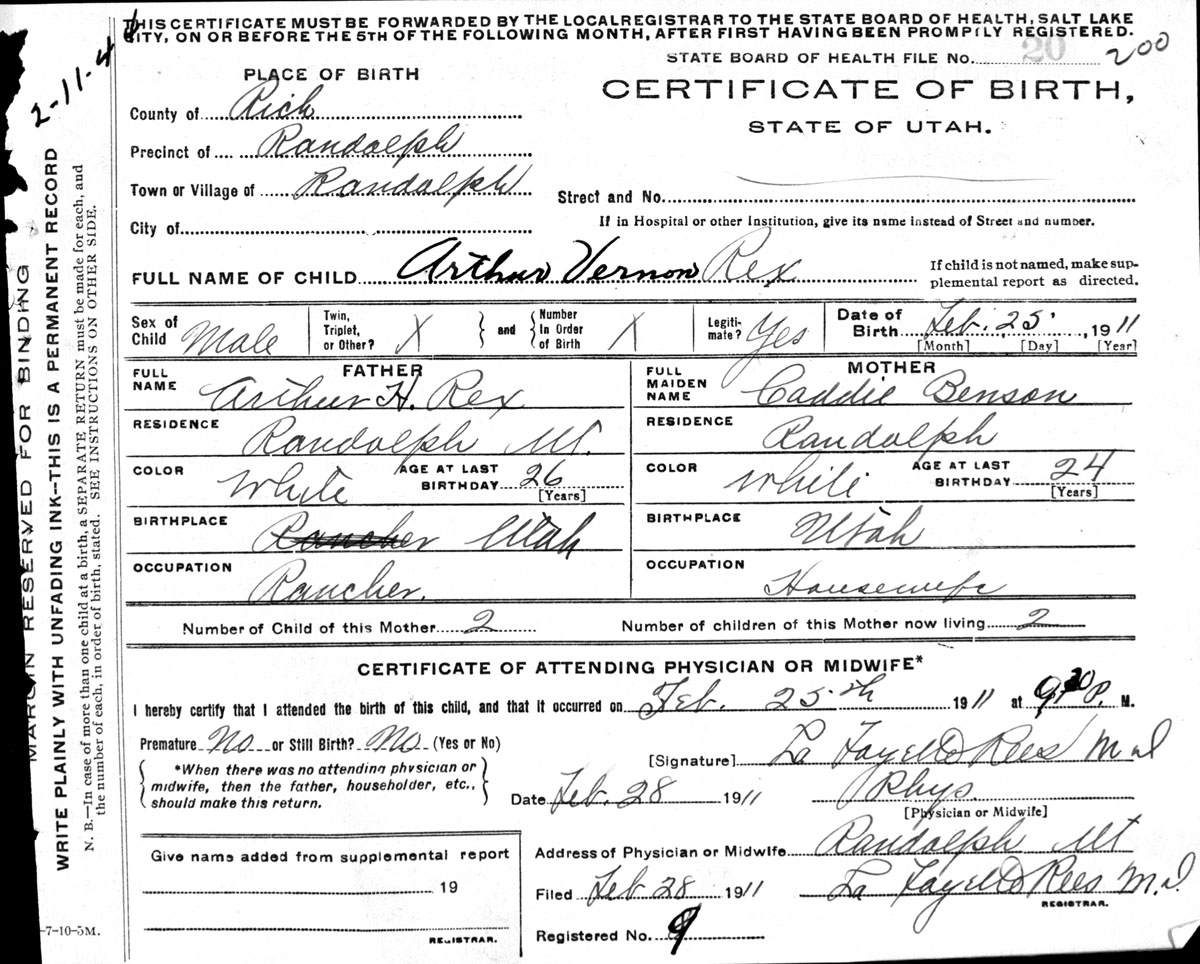 THIS CERTIFICATE MUST BE FORWARDED BY THE LOCAL REGISTRAR TO THE STATE BOARD OF HEALTH, SALT LAKE
CITY, ON OR BEFORE THE 5TH OF THE FOLLOWING MONTH, AFTER FIRST HAVING BEEN PROMPTLY REGISTERED.
STATE BOARD OF HEALTH FILE NO. 20 200
PLACE OF BIRTH
CERTIFICATE OF BIRTH,
STATE OF UTAH.
County of Rich
Precinct of Randolph
Town or Village of Randolph
Street and No.
City of
If in Hospital or other Institution, give its name instead of Street and number.
FULL NAME OF CHILD Arthur Vernon Rex
If child is not named, make sup-
plemental report as directed.
Sex of Child Male
Twin, Triplet, or Other? X
and
Number In Order of Birth X
Legiti-mate? Yes
Date of Birth Feb. 25. , 1911
[Month] [Day] [Year]
FATHER
FULL NAME Arthur H. Rex
RESIDENCE Randolph Ut.
COLOR White
AGE AT LAST BIRTHDAY 26
[Years]
BIRTHPLACE Rancher Utah
OCCUPATION Rancher.
MOTHER
FULL MAIDEN NAME Caddie Benson
RESIDENCE Randolph
COLOR White
AGE AT LAST BIRTHDAY 24
[Years]
BIRTHPLACE Utah
OCCUPATION Housewife
Number of Child of this Mother 2
Number of children of this Mother now living 2
CERTIFICATE OF ATTENDING PHYSICIAN OR MIDWIFE*
I hereby certify that I attended the birth of this child, and that it occurred on Feb. 25th 1911 at 9 30 P. M.
Premature No or Still Birth? No (Yes or No)
*When there was no attending physician or
midwife, then the father, householder, etc.,
should make this return.
[Signature] La Fayette Rees M d
Date Feb. 28 1911
Phys.
[Physician or Midwife]
Address of Physician or Midwife Randolph Ut
Filed Feb 28 1911
La Fayette Rees M.d.
REGISTRAR.
Registered No. 9
Give name added from supplemental report
19
REGISTRAR.
2-11-4
MARGIN RESERVED FOR BINDING
WRITE PLAINLY WITH UNFADING INK--THIS IS A PERMANENT RECORD
N. B.—In case of more than one child at a birth, a SEPARATE RETURN must be made for each, and
the number of each, in order of birth, stated. SEE INSTRUCTIONS ON OTHER SIDE.
-7-10-5M.